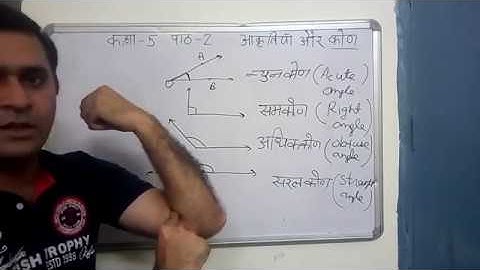 कक्षा-5 पाठ-2 आकृतियाँ और कोण
A
O B
=न्यूनकोण (Acute angle)
समकोण (Right angle)
अधिककोण (obtuse angle)
सरलकोण (Straight angle)
TROPHY
ESTD 1998